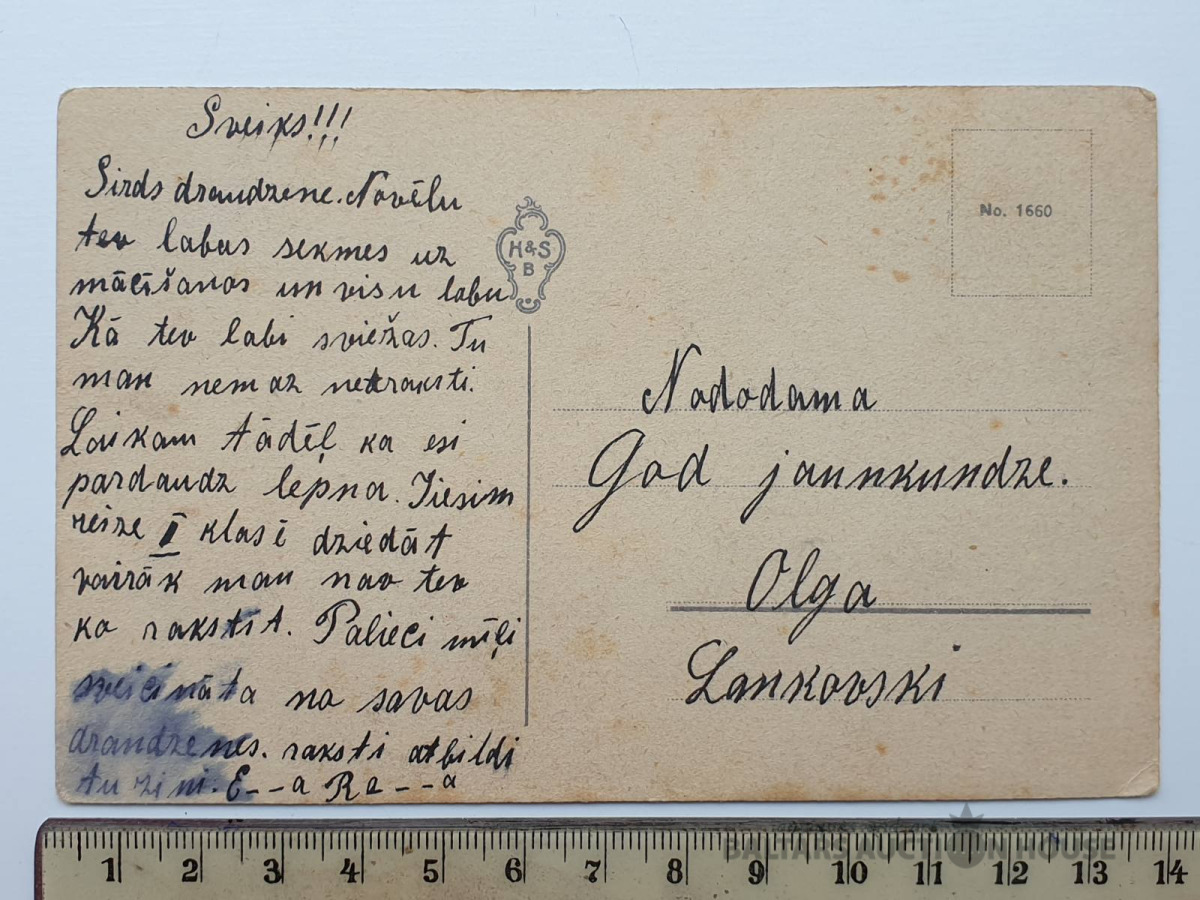 Sveiks!!!
Sirds draudzene. Novēlu
tev labas sekmes uz
mācīšanos un visu labu
Kā tev labi sviežas. Tu
man nemaz neraksti.
Laikam tādēļ ka esi
pardaudz lepna. Iiesim
reize II klasē dziedāt
vairāk man nav tev
ko rakstīt. Palieci mīļi
sveicināta no savas
draudzenes. raksti atbildi
tu zini. E--a Ra---a
H&S
B
No. 1660
Nododama
God jaunkundze.
Olga
Lankovski
1 2 3 4 5 6 7 8 9 10 11 12 13 14
BALTARS AUCTION HOUSE